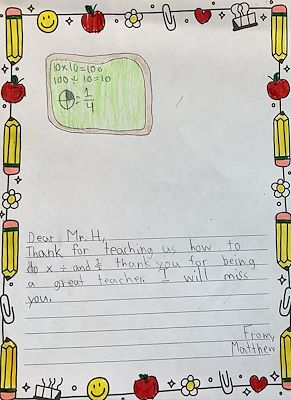 10x10=100
100÷10=10
=1/4
Dear Mr. H,
Thank for teaching us how to
do x ÷ and ½ thank you for being
a great teacher. I will miss
you.
From,
Matthew